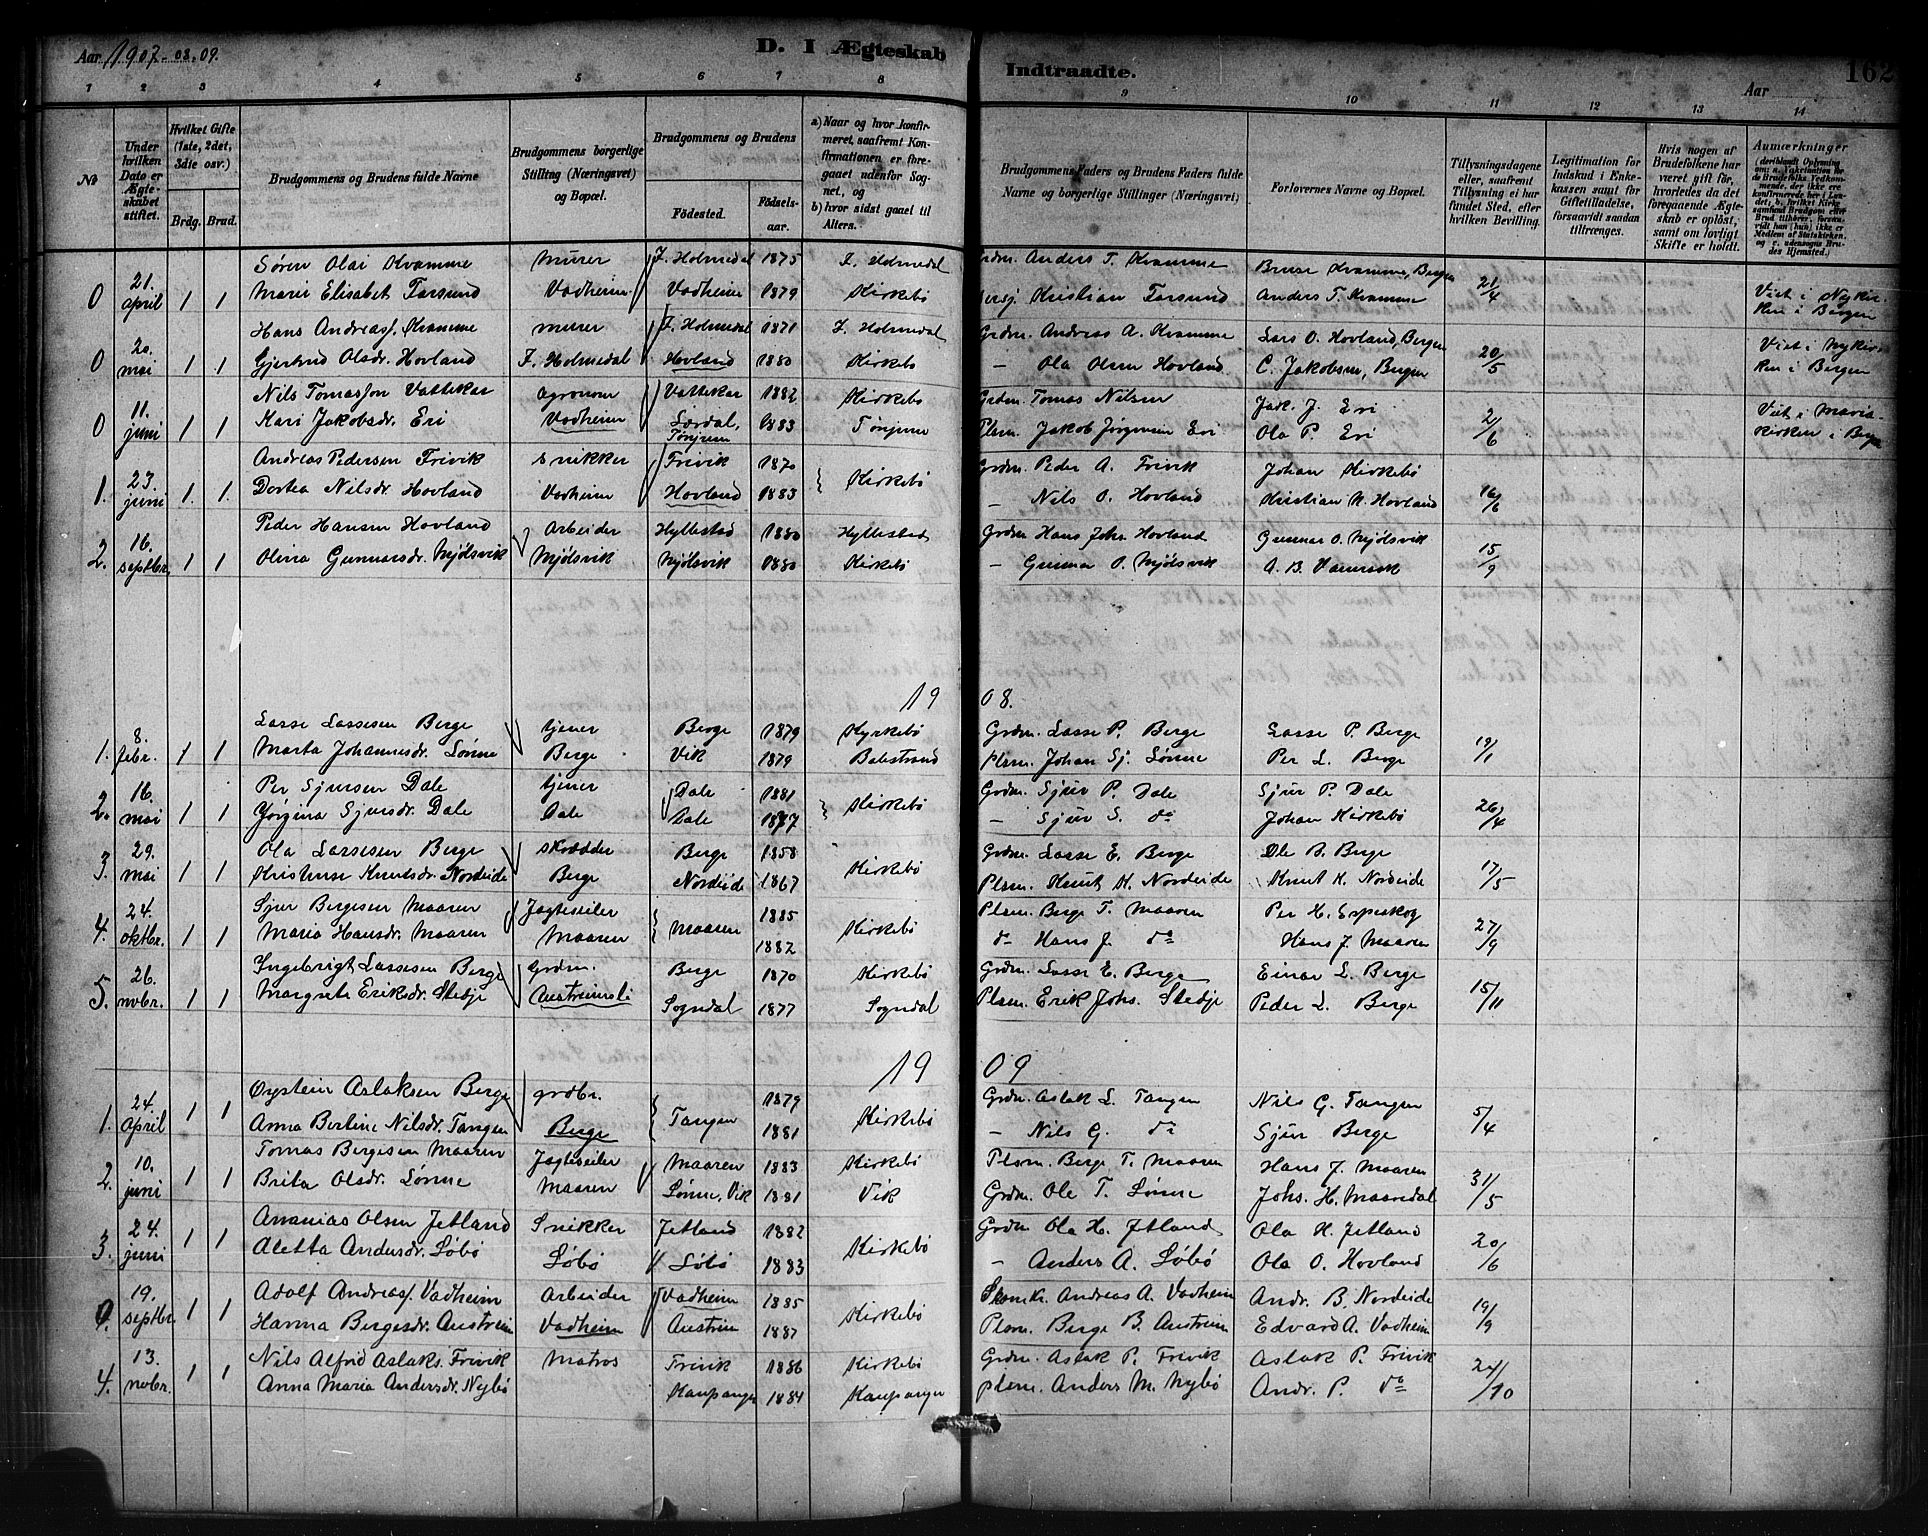 Aar 1907-08-09.
D. I Ægteskab
Indtraadte.
162
Aar
1 2 3 4 5 6 7 8 9 10 11 12 13 14
No
Under hvilken Dato er Ægteskabet stiftet.
Hvilket Gifte (1ste, 2det, 3die osv.)
Brdg. Brud.
Brudgommens og Brudens fulde Navne
Brudgommens borgerlige Stilling (Næringsvei) og Bopæl.
Brudgommens og Brudens
Födested.
Födselsaar.
a) Naar og hvor konfirmeret, saafremt Konfirmationen er foregaaet udenfor Sognet, og
b) hvor sidst gaaet til Alters.
Brudgommens Faders og Brudens Faders fulde Navne og borgerlige Stillinger (Næringsvei)
Forlovernes Navne og Bopæl.
Tillysningsdagene eller, saafremt Tillysning ei har fundet Sted, efter hvilken Bevilling.
Legitimation for Indskud i Enkekassen samt for Giftetilladelse, forsaavidt saadan tiltrænges.
Hvis nogen af Brudefolkene har været gift før, hvorledes da det foregaaende Ægteskab er oplöst, samt om lovligt Skifte er holdt.
Anmærkninger
0 21. april 1 1 Sören Olai Kvamme murer Y. Holmedal 1875 Y. Holmedal Grdm. Anders T. Kvamme Kvamme, Bergen 21/4 Viet i Nykir-
Marie Elisabet Tarsund Vadheim Vadheim 1879 Kirkebö Kristian Tarsund Anders T. Kvamme ken i Bergen
0 20. mai 1 1 Hans Andreasf. Kvamme murer Y. Holmedal 1871 Y. Holmedal Grdm. Andreas A. Kvamme Lars O. Hovland, Bergen 20/5 Viet i Nykir-
Gjertrud Olsdr. Hovland Y. Holmedal Hovland 1880 Kirkebö — Ola Olsen Hovland C. Jakobsen, Bergen ken i Bergen
0 11. juni 1 1 Nils Tomassön Vattekar agronom Vattekar 1882 Kirkebö Grdm. Tomas Nilsen Jak. J. Eri 2/6 Viet i Maria-
Kari Jakobsdr. Eri Vadheim Lærdal, Tönjum 1883 Tönjum Plsm. Jakob Jörgensen Eri Ola P. Eri kirken i Bergen
1. 23. juni 1. 1. Andreas Pedersen Frivik snikker Frivik 1870 Kirkebö Grdm. Peder A. Frivik Johan Kirkebö 16/6
Dortea Nilsdr. Hovland Vadheim Hovland 1883 — Nils O. Hovland Kristian N. Hovland
2. 16. septbr. 1 1 Peder Hansen Hovland Arbeider Hyllestad 1880 Hyllestad Grdm Hans Johs. Hovland Gunnar O. Mjölsvik 15/9
Olina Gunnarsdr. Mjölsvik Mjölsvik Mjölsvik 1880 Kirkebö — Gunnar O. Mjölsvik
1908.
1. 8. febr. 1 1 Lasse Lassesen Berge tjener Berge 1879 Kyrkebö Grdm. Lasse P. Berge Lasse P. Berge 19/1
Marta Johannesdr. Lönne Berge Vik 1879 Balestrand Plsm. Johan Sj. Lönne Per L. Berge
2. 16. mai 1 1 Per Sjursen Dale tjener Dale 1881 Kirkebö Grdm. Sjur P. Dale Sjur P. Dale 26/4
Jörgina Sjursdr. Dale Dale Dale 1887 — Sjur S. do Johan Kirkebö
3. 29. mai 1 1 Ola Lassesen Berge skrædder Berge 1858 Kirkebö Grdm. Lasse E. Berge Ole B. Berge 17/5
Kristense Knutsdr. Nordeide Berge Nordeide 1867 Plsm. Knut K. Nordeide Knut K. Nordeide
4. 24. oktbr. 1 1 Sjur Bergesen Maaren Jagteseiler Maaren 1885 Kirkebö Plsm. Berge T. Maaren Per H. Espeskog 27/9
Maria Hansdr. Maaren Maaren 1882 do Hans J. do Hans J. Maaren
5. 26. novbr. 1 1 Ingebrigt Lassesen Berge Grdm. Berge 1870 Kirkebö Grdm. Lasse E. Berge Einar L. Berge 15/11
Margrete Eriksdr. Stedje Austreimsli Sogndal 1877 Sogndal Plsm. Erik Johs. Stedje Peder L. Berge
1909
1. 24. April 1 1 Öystein Aslaksen Berge grdbr. Tangen 1879 Kirkebö Grdm. Aslak L. Tangen Nils G. Tangen 5/4
Anna Bertine Nilsdr. Tangen Berge 1881 — Nils G. do Sjur Berge
2. 10. juni 1 1 Tomas Bergesen Maaren Jagteseiler Maaren 1883 Kirkebö Plsm. Berge T. Maaren Hans J. Maaren 31/5
Brita Olsdr. Lönne Maaren Lönne, Vik 1881 Vik Grdm. Ole T. Lönne Johs. H. Maaredal
3. 24. juni 1 1 Ananias Olsen Jetland Snikker Jetland 1882 Kirkebö Grdm Ola H. Jetland Ola H. Jetland 20/6
Aletta Andersdr. Löbö Löbö Löbö 1883 — Anders A. Löbö Ola O. Hovland
19. septbr. 1 1 Adolf Andreasf. Vadheim Arbeider Vadheim 1885 Kirkebö Andreas A. Vadheim Andr. B. Nordeide 19/9
Hanna Bergesdr. Austreim Vadheim Austreim 1887 Plsm. Berge B. Austreim Edvard A. Vadheim
4. 13. novbr. 1 1 Nils Alfrid Aslaks. Frivik Matros Frivik 1886 Kirkebö Grdm. Aslak P. Frivik Aslak P. Frivik 24/10
Anna Maria Andersdr. Nybö Kaupanger 1884 Kaupanger plsm. Anders M. Nybö Andr. P. do